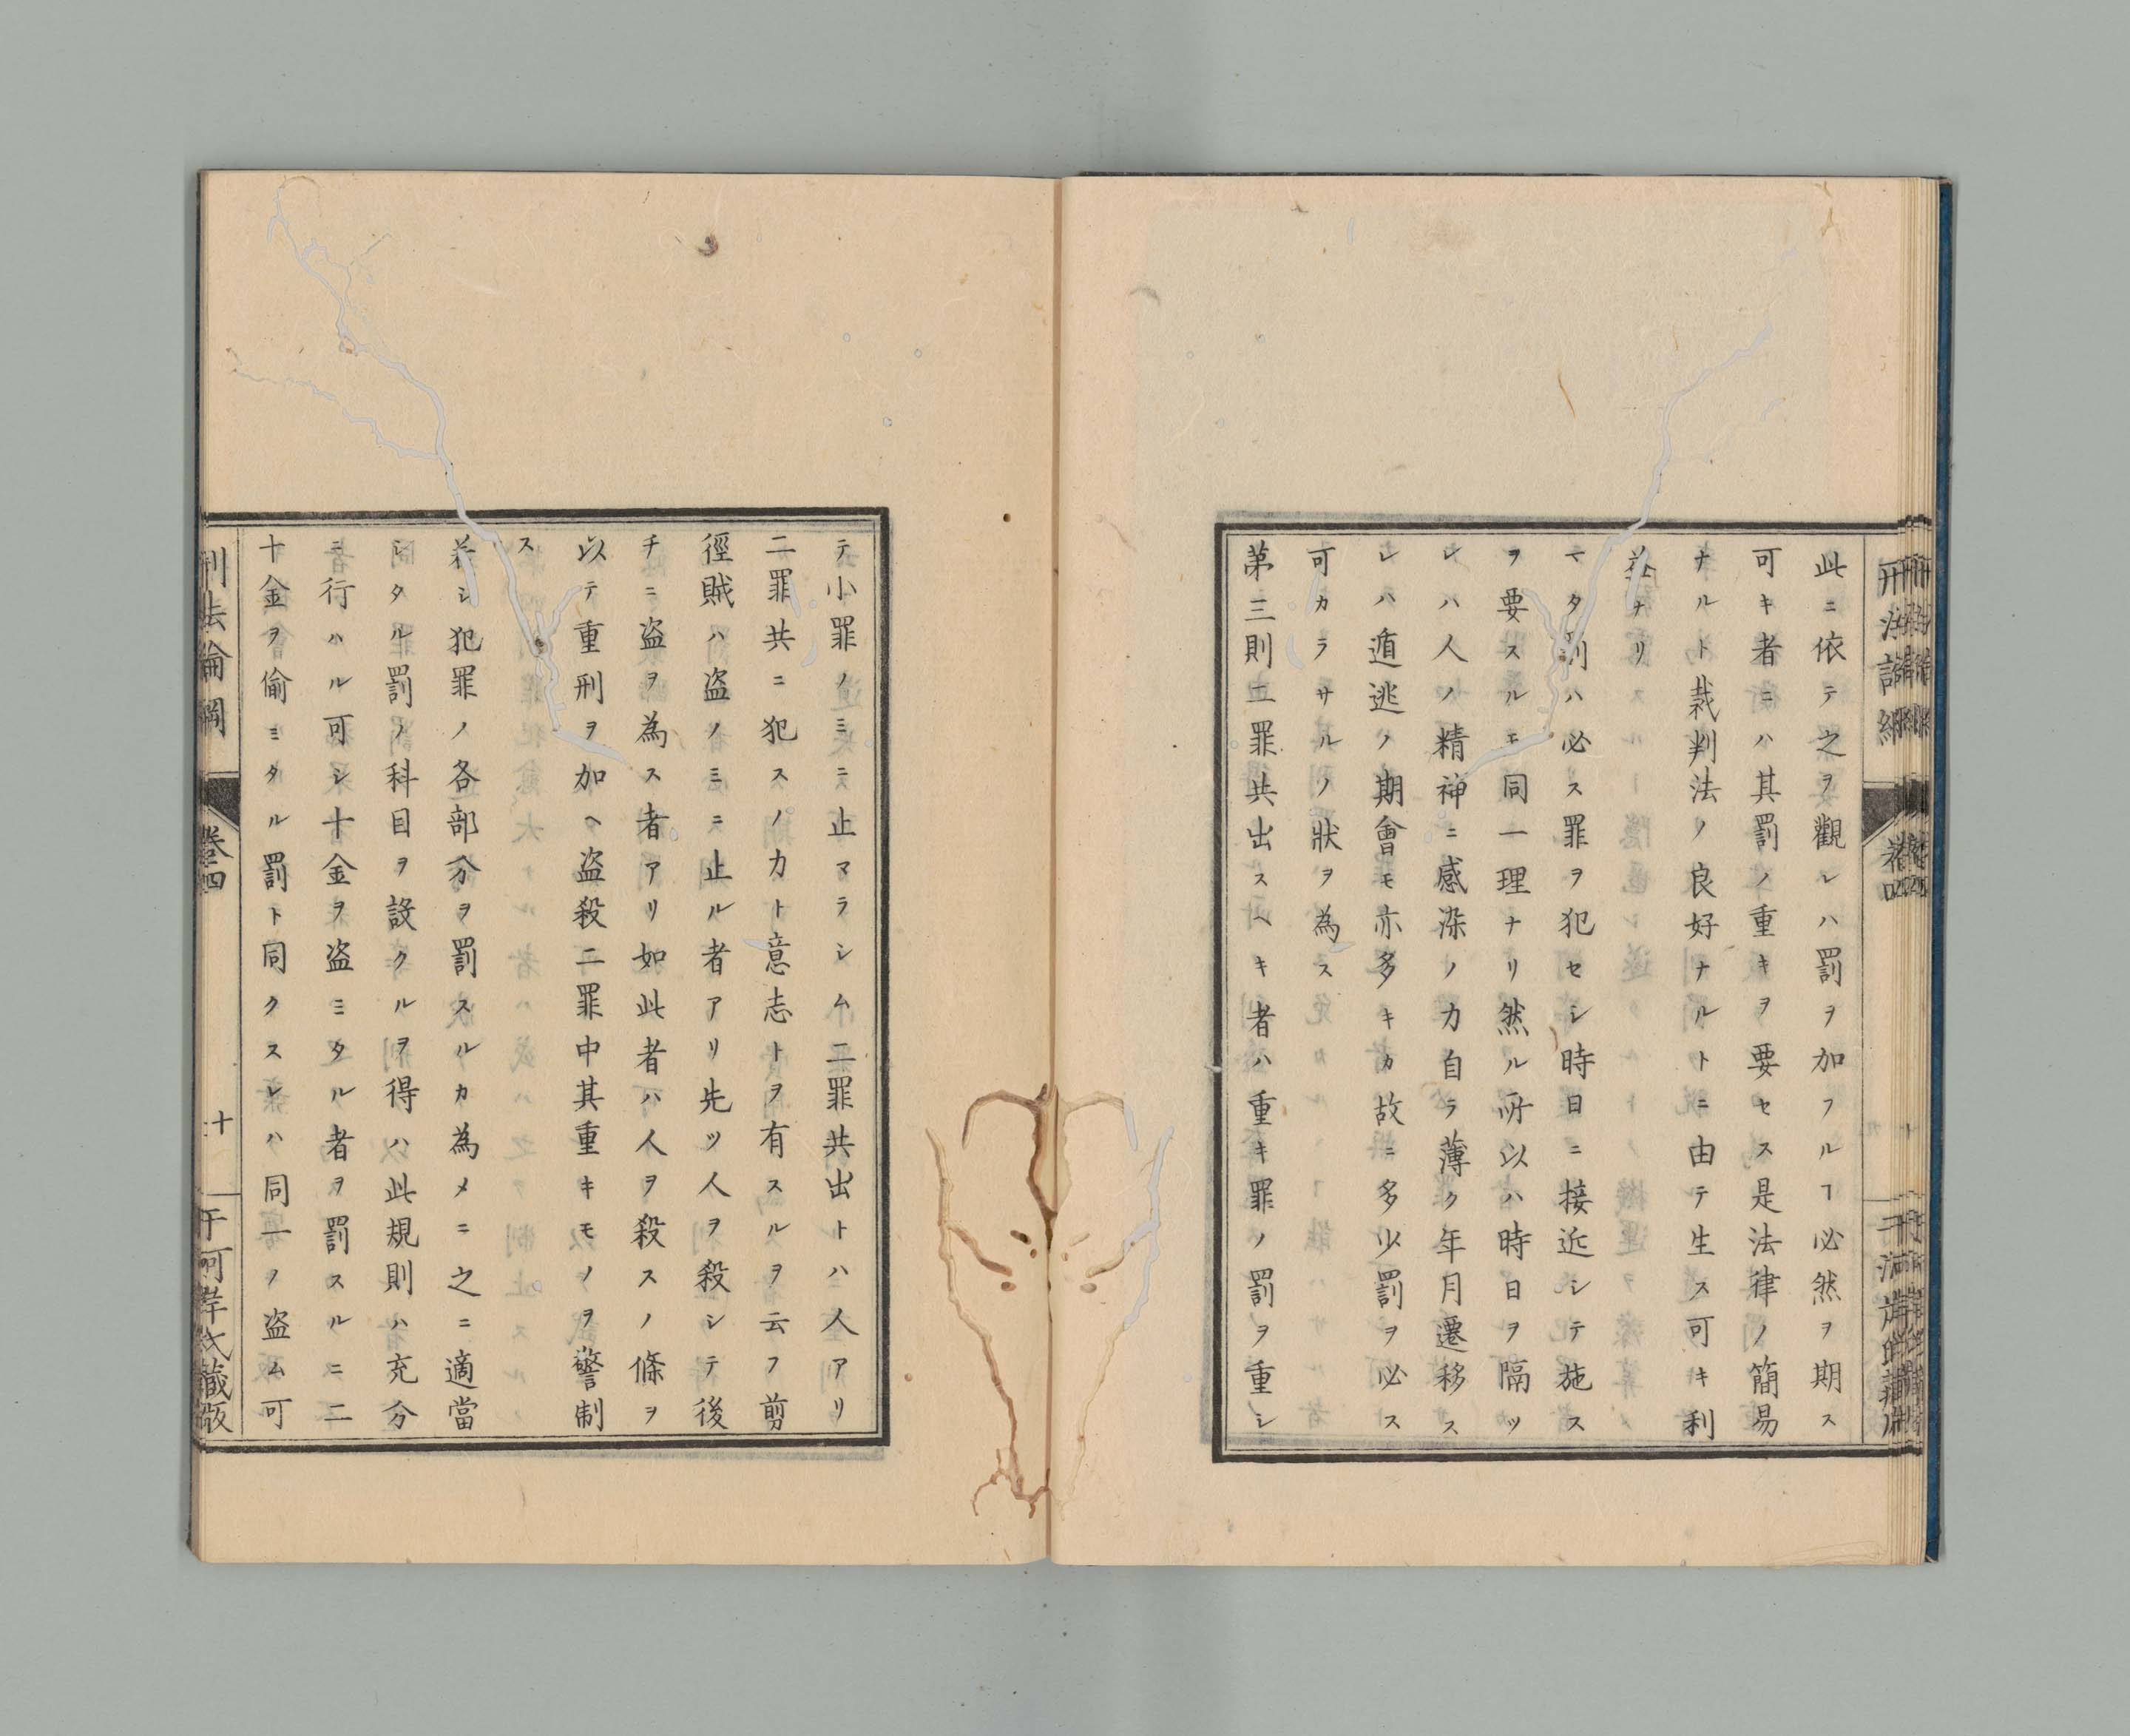 此ニ依テ之ヲ觀レハ罰ヲ加フルヿ必然ヲ期ス
可キ者ニハ其罰ノ重キヲ要セス是法律ノ簡易
ナルト裁判法ノ良好ナルトニ由テ生ス可キ利
益ナリ
マタ刑ハ必ス罪ヲ犯セシ時日ニ接近シテ施ス
ヲ要スルモ同一理ナリ然ル所以ハ時日ヲ隔ツ
レハ人ノ精神ニ感染ノカ自ラ薄ク年月遷移ス
レハ遁逃ノ期會モ亦多キカ故ニ多少罰ヲ必ス
可カラサルノ狀ヲ為ス
第三則二罪共出スヘキ者ハ重キ罪ノ罰ヲ重シ
テ小罪ノミニ止マラシム二罪共出トハ人アリ
二罪共ニ犯スノカト意志トヲ有スルヲ云フ剪
徑賊ハ盗ノミニ止ル者アリ先ツ人ヲ殺シテ後
チニ盗ヲ為ス者アリ如此者ハ人ヲ殺スノ條ヲ
以テ重刑ヲ加ヘ盗殺二罪中其重キモノヲ警制
ス
若シ犯罪ノ各部分ヲ罰スルカ為メニ之ニ適當
シタル罰ノ科目ヲ設クルヲ得ハ此規則ハ充分
ニ行ハル可シ十金ヲ盗ミタル者ヲ罰スルニ二
十金ヲ偷ミタル罰ト同クスレハ同一ノ盗ム可
刑法論綱
卷四
十
干河岸氏藏版